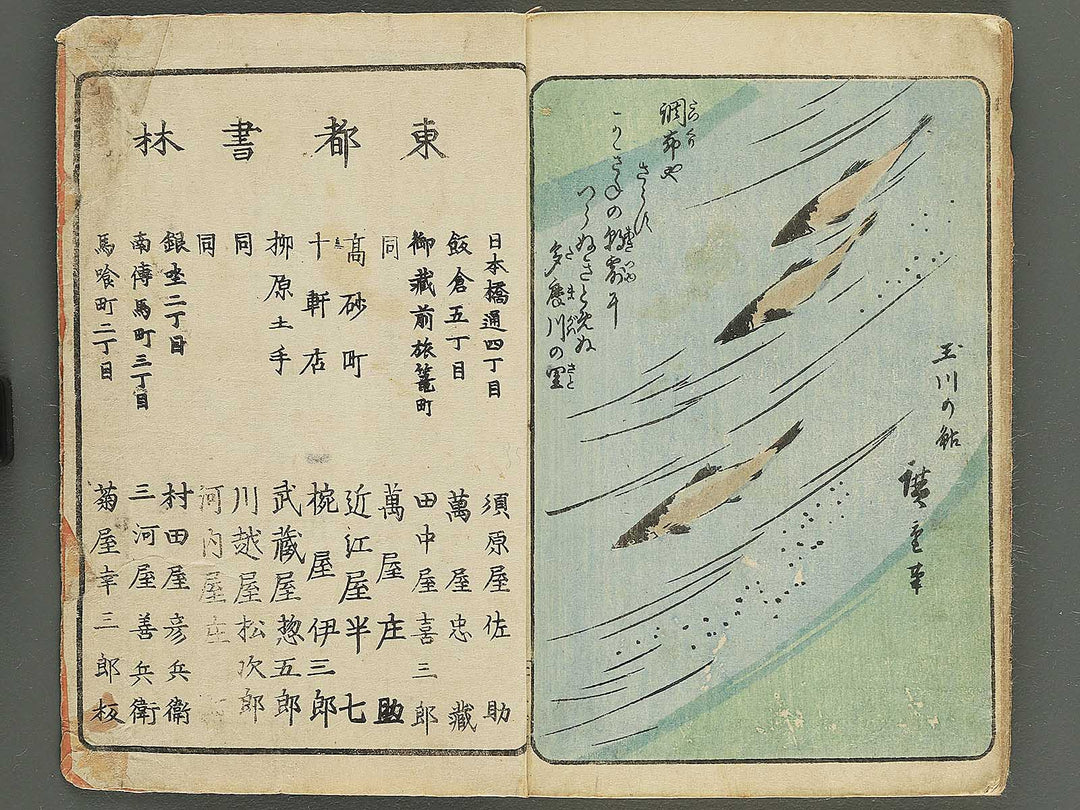 玉川の鮎
廣重筆
調布や
さらす
かきねの朝露を
つらぬきとめぬ
多麻川の里
東都書林
日本橋通四丁目 須原屋佐助
飯倉五丁目 萬屋忠藏
御藏前旅篭町 田中屋喜三郎
同 萬屋庄助
高砂町 近江屋半七
十軒店 椀屋伊三郎
柳原土手 武藏屋惣五郎
同 川越屋松次郎
同 河内屋
銀坐二丁目 村田屋彦兵衛
南傳馬町三丁目 三河屋善兵衛
馬喰町二丁目 菊屋幸三郎板